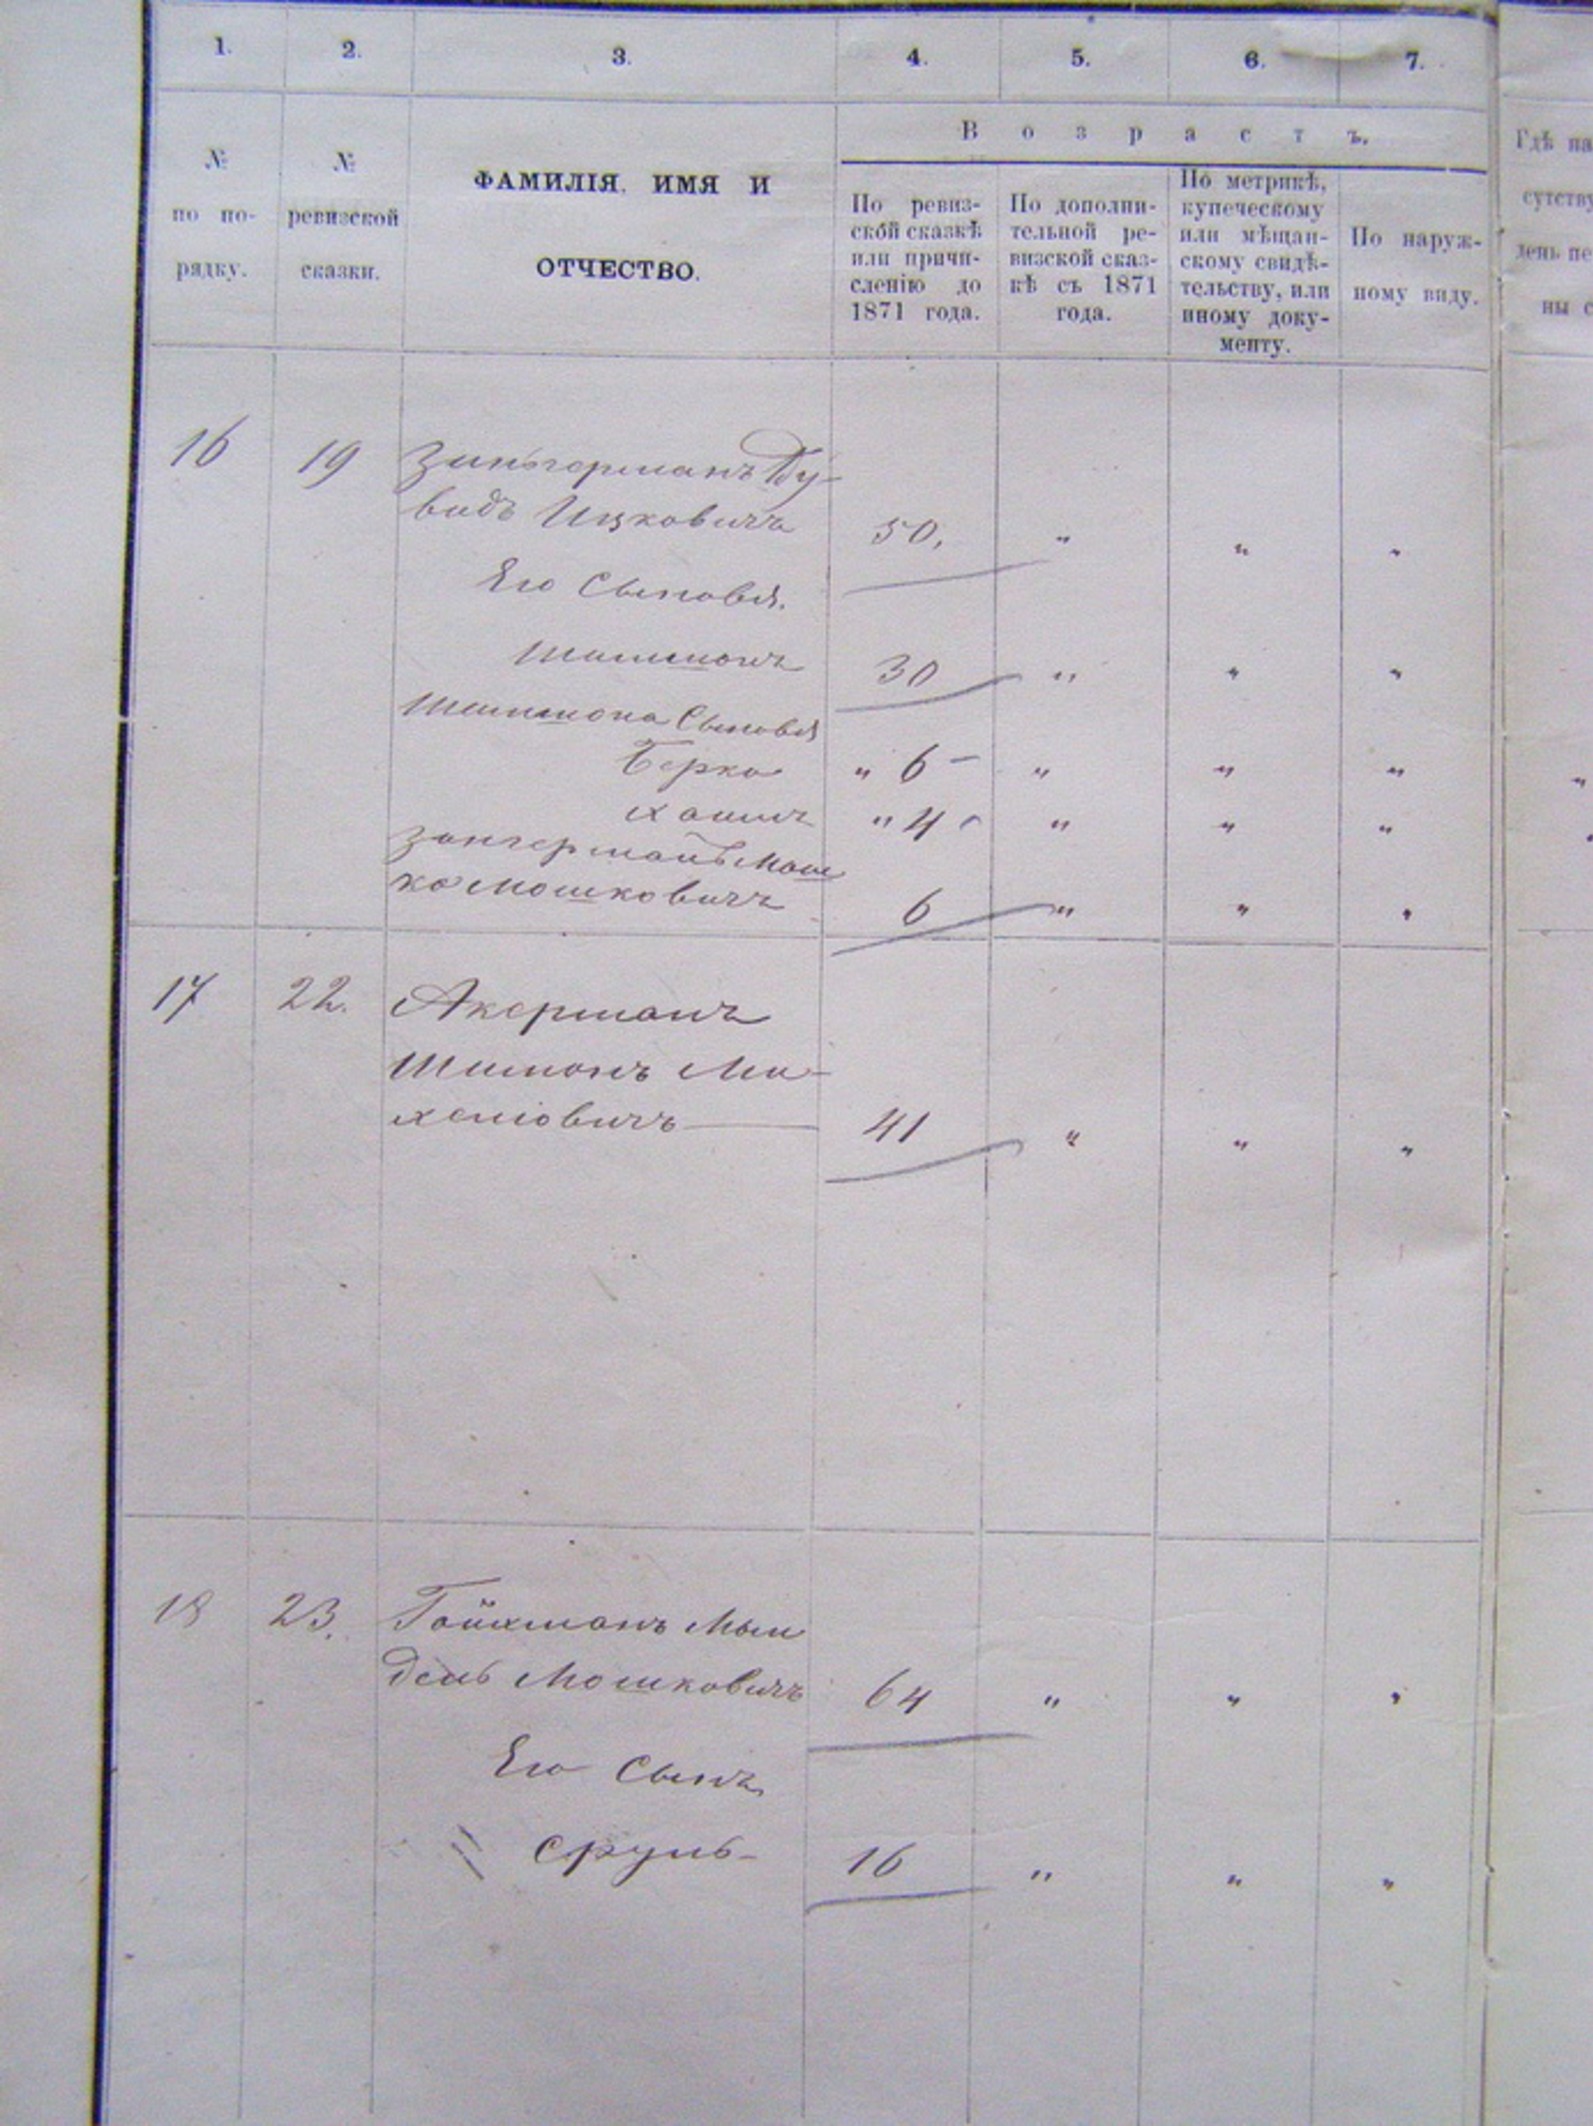 1. 2. 3. 4. 5. 6. 7.
№ по по-
рядку.
№ ревизской
сказки.
ФАМИЛІЯ, ИМЯ И
ОТЧЕСТВО.
Возрастъ.
По ревиз-
ской сказкѣ
или причи-
сленію до
1871 года.
По дополни-
тельной ре-
визской сказ-
кѣ съ 1871
года.
По метрикѣ,
купеческому
или мѣщан-
скому свидѣ-
тельству, или
иному доку-
менту.
По наруж-
ному виду.
Гдѣ на
сутству
день пе
ны с
16 19 Зингерманъ Ду-
видъ Ицковичъ 50, " " "
Его Сыновья.
Шимонъ 30 " " "
Шимона Сыновья
Берко " 6 – " " "
Хаимъ " 4 " " "
Зингерманъ Мош
ко Мошковичъ 6 " " "
17 22. Акерманъ
Шимонъ Ми-
хелiовичъ 41 " " "
18 23. Гойхманъ Мен
дель Мошковичъ 64 " " "
Его Сынъ
Сруль – 16 " " "